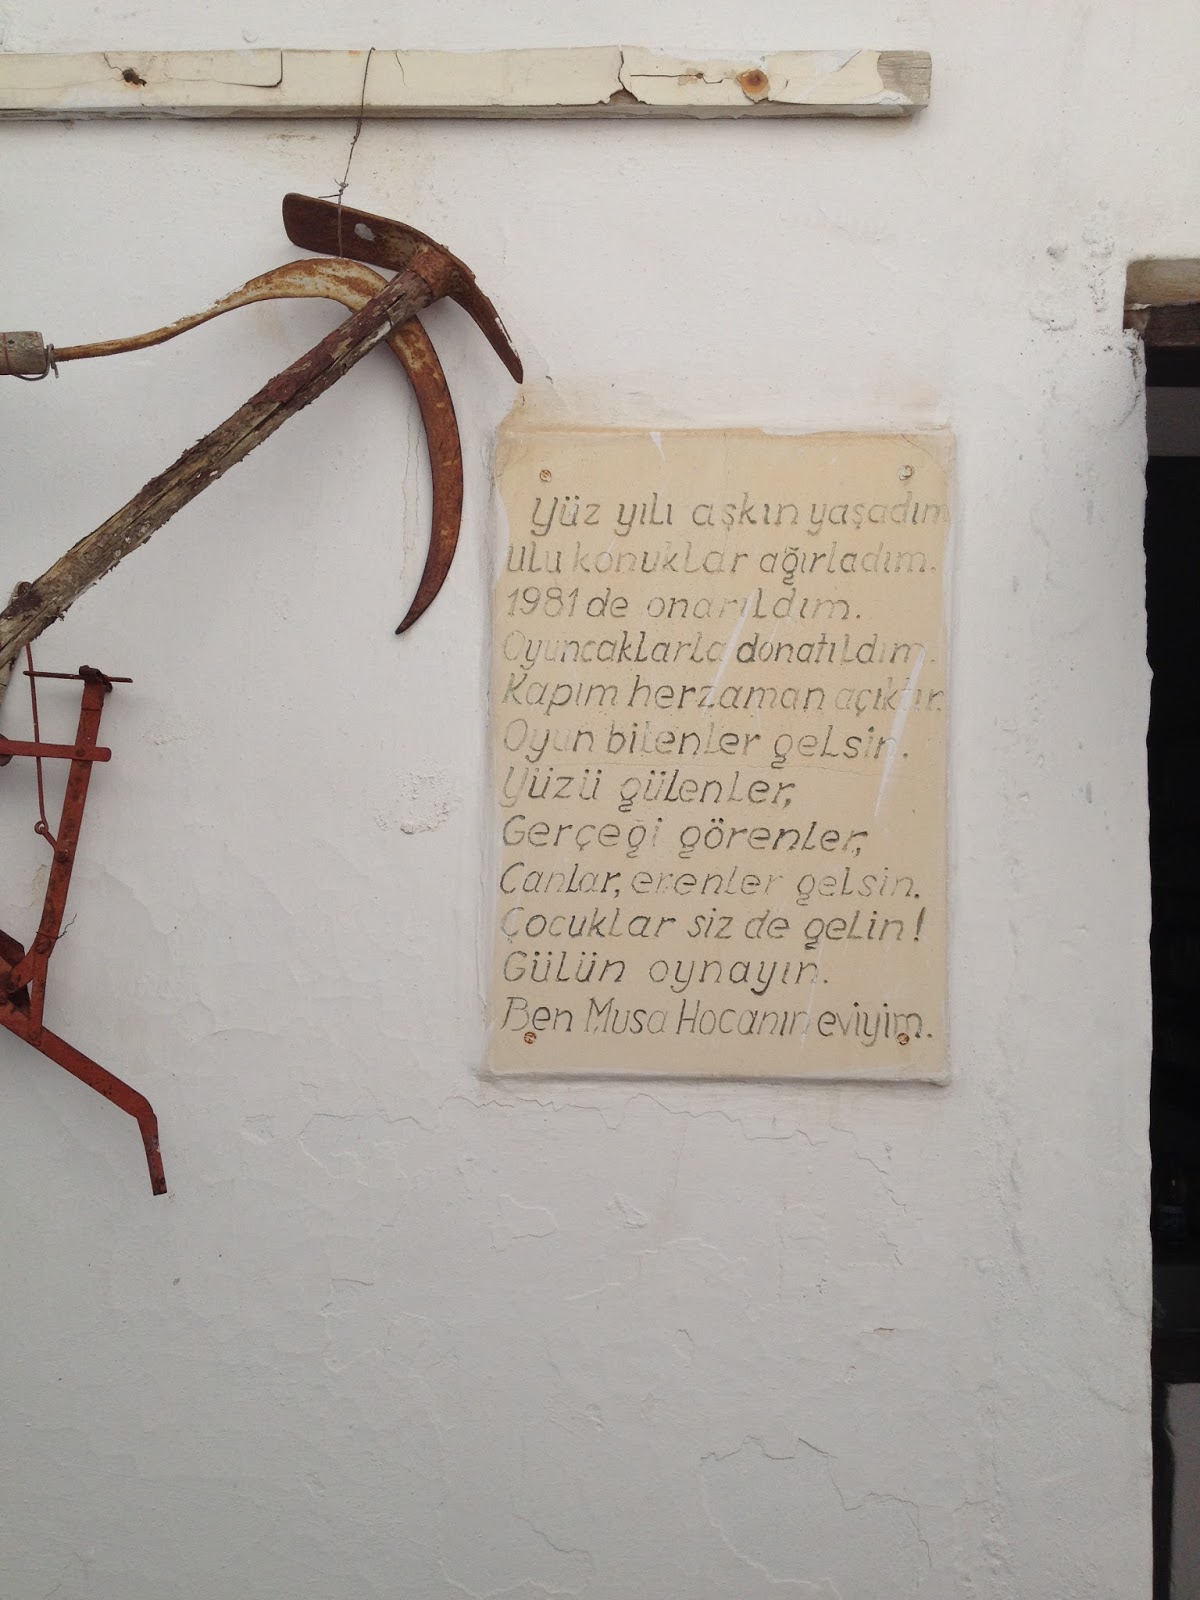 Yüz yılı aşkın yaşadım
ulu konuklar ağırladım.
1981 de onarıldım.
Oyuncaklarla donatıldım.
Kapım herzaman açıktır.
Oyun bilenler gelsin.
Yüzü gülenler,
Gerçeği görenler,
Canlar, erenler gelsin.
Çocuklar siz de gelin!
Gülün oynayın.
Ben Musa Hocanın eviyim.